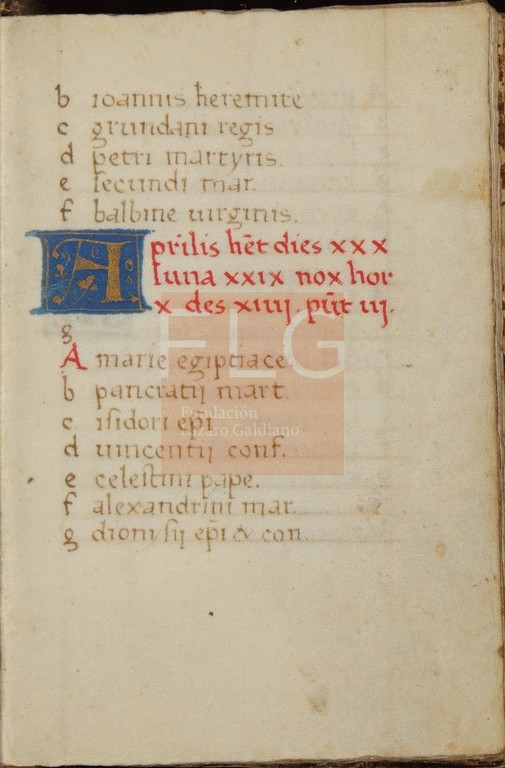 b ioannis heremite
c grundani regis
d petri martyris.
e secundi mar.
f balbine uirginis.
Aprilis hēt dies xxx
luna xxix nox hor
x des xiiij pūt iij.
g
A marie egiptiace
b pancratij mart.
c isidori ep̄i
d uincentij conf.
e celestini pape.
f alexandrini mar.
g dionisij ep̄i & con.
FLG
Fundación
Lázaro Galdiano